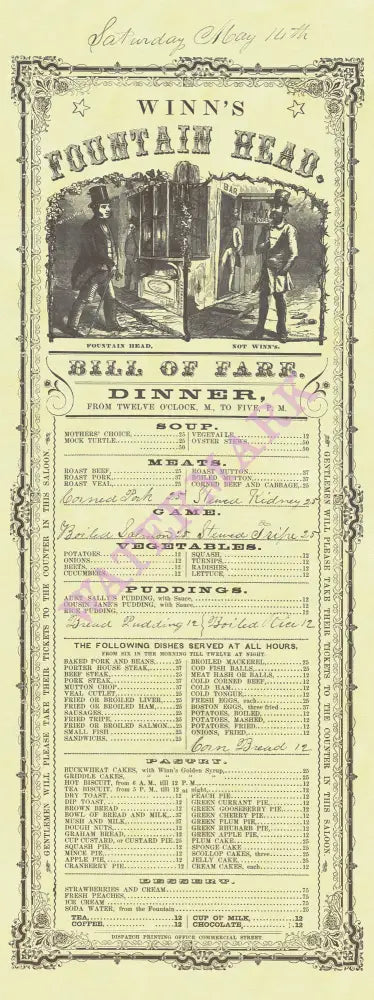 Saturday May 14th
WINN'S
FOUNTAIN HEAD.
BAR
FOUNTAIN HEAD,
NOT WINN'S.
BILL OF FARE.
DINNER,
FROM TWELVE O'CLOCK, M., TO FIVE, P. M.
SOUP.
MOTHERS' CHOICE, 25
MOCK TURTLE 25
50
VEGETABLE 12
OYSTER STEWS 50
50
MEATS.
ROAST BEEF, 25
ROAST PORK, 37
ROAST VEAL, 25
ROAST MUTTON, 37
BOILED MUTTON, 37
CORNED BEEF AND CABBAGE, 25
Corned Pork 25
Stewed Kidney 25
GAME.
Boiled Salmon 25
Stewed Tripe 25
VEGETABLES.
POTATOES, 12
ONIONS, 12
BEETS, 12
CUCUMBERS, 12
SQUASH, 12
TURNIPS, 12
RADISHES, 12
LETTUCE, 12
PUDDINGS.
AUNT SALLY'S PUDDING, with Sauce, 12
COUSIN JANE'S PUDDING, with Sauce, 12
RICE PUDDING, 12
Bread Pudding 12
Boiled Rice 12
THE FOLLOWING DISHES SERVED AT ALL HOURS,
FROM SIX IN THE MORNING TILL TWELVE AT NIGHT.
BAKED PORK AND BEANS, 25
PORTER HOUSE STEAK, 37
BEEF STEAK, 25
PORK STEAK, 25
MUTTON CHOP, 25
VEAL CUTLET, 25
FRIED OR BROILED LIVER, 25
FRIED OR BROILED HAM, 25
SAUSAGES, 25
FRIED TRIPE, 25
FRIED OR BROILED SALMON, 25
SMALL FISH 25
SANDWICHS, 25
BROILED MACKEREL, 25
COD FISH BALLS, 25
MEAT HASH OR BALLS, 12
COLD CORNED BEEF, 25
COLD HAM, 12
COLD TONGUE, 25
FRESH EGGS, each
BOSTON EGGS, three fried
POTATOES, BOILED, 12
POTATOES, MASHED, 12
POTATOES, FRIED, 12
ONIONS, FRIED, 12
Corn Bread 12
PASTRY.
BUCKWHEAT CAKES, with Winn's Golden Syrup, 25
GRIDDLE CAKES, " " " 25
HOT BISCUIT, from 6 A. M. till 12 P. M. 12
TEA BISCUIT, from 5 P. M., till 12 at night, 12
DRY TOAST, 12
DIP TOAST, 12
BROWN BREAD 12
BOWL OF BREAD AND MILK, 37
MUSH AND MILK, 37
DOUGH NUTS, 12
GRAHAM BREAD, 12
CUP CUSTARD, or CUSTARD PIE, 25
SQUASH PIE, 12
MINCE PIE, 12
APPLE PIE, 12
CRANBERRY PIE, 12
PEACH PIE, 12
GREEN CURRANT PIE, 12
GREEN GOOSEBERRY PIE, 12
GREEN CHERRY PIE, 12
GREEN PLUM PIE, 12
GREEN RHUBARB PIE, 12
GREEN APPLE PIE, 12
PLUM CAKE, 25
SPONGE CAKE 25
SCOLLOP CAKES, three, 25
JELLY CAKE, 25
CREAM CAKES, each, 12
DESSERT.
STRAWBERRIES AND CREAM, 75
FRESH PEACHES, 25
ICE CREAM 25
SODA WATER, from the Fountain 25
TEA, 12
COFFEE, 12
CUP OF MILK, 12
CHOCOLATE, 12
DISPATCH PRINTING OFFICE COMMERCIAL STREET.
GENTLEMEN WILL PLEASE TAKE THEIR TICKETS TO THE COUNTER IN THIS SALOON
GENTLEMEN WILL PLEASE TAKE THEIR TICKETS TO THE COUNTER IN THE SALOON
WATERMARK